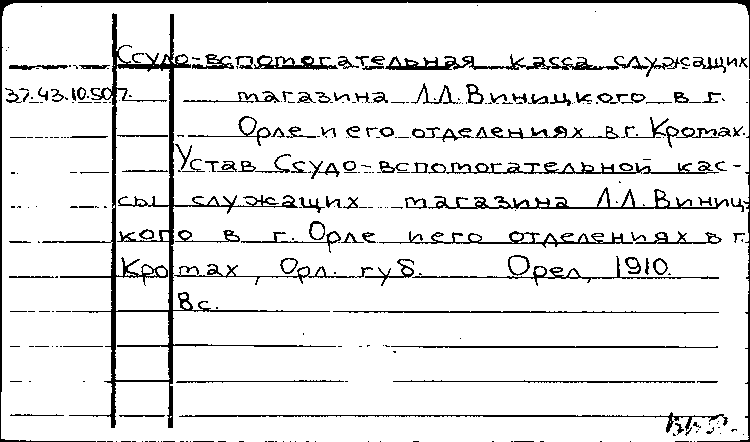 Ссудо-вспомогательная касса служащих
37.43.10.507. магазина Л.Л.Виницкого в г.
Орле и его отделениях в г. Кромах.
Устав Ссудо-вспомогательной кас-
сы служащих магазина Л.Л.Виниц-
кого в г. Орле и его отделениях в г.
Кромах, Орл. губ. Орел, 1910.
8 с.